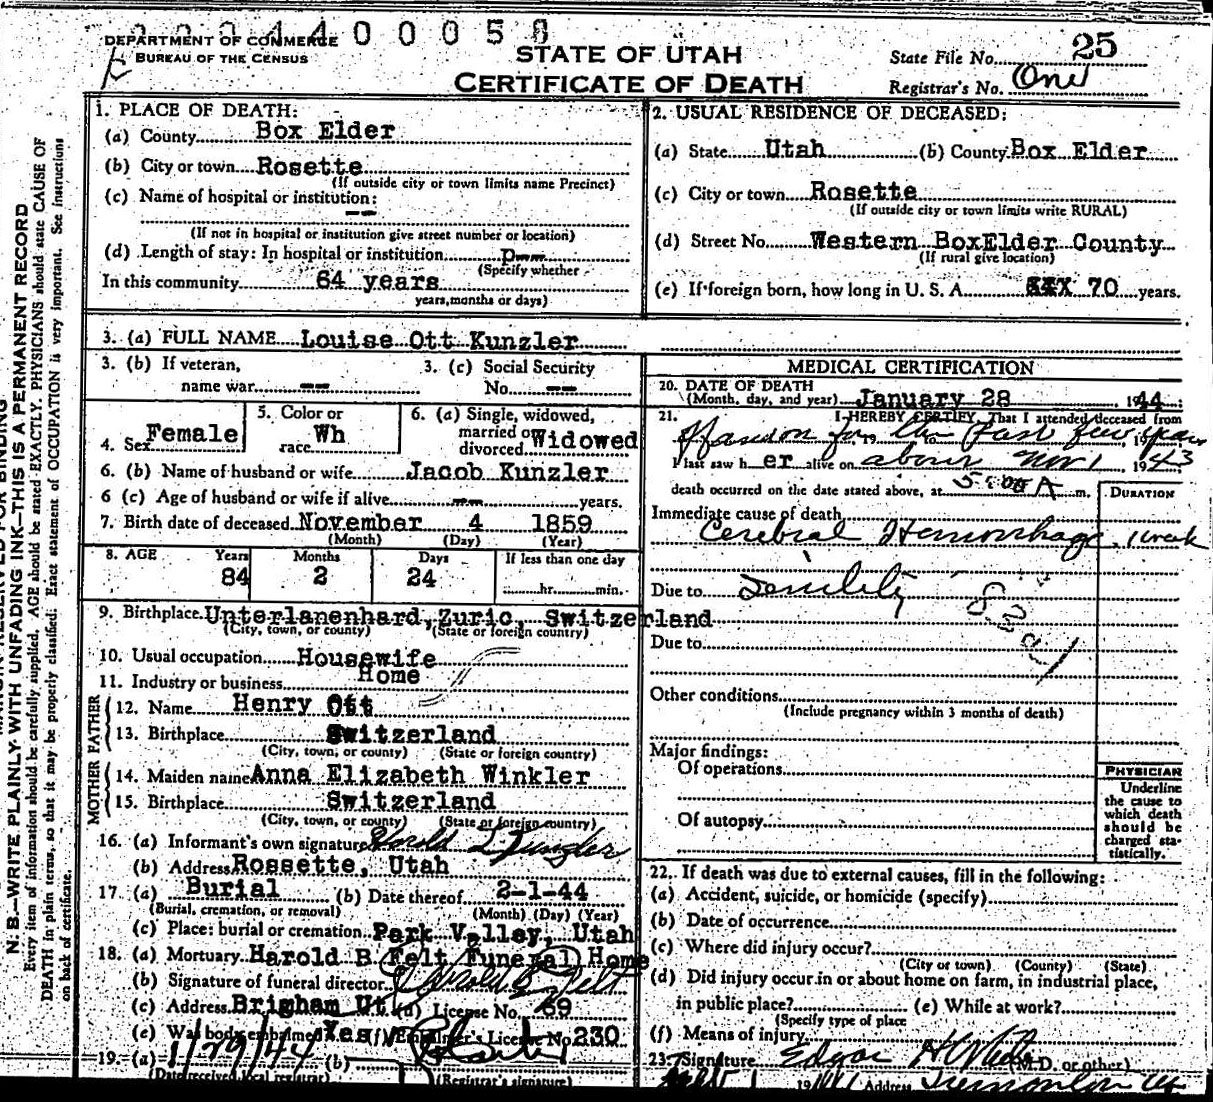 2 2 0 4 4 0 0 0 5 8
DEPARTMENT OF COMMERCE
BUREAU OF THE CENSUS
STATE OF UTAH
CERTIFICATE OF DEATH
State File No. 25
Registrar's No. One
N. B.—WRITE PLAINLY WITH UNFADING INK—THIS IS A PERMANENT RECORD
Every item of information should be carefully supplied. AGE should be stated EXACTLY. PHYSICIANS should state CAUSE OF
DEATH in plain terms, so that it may be properly classified. Exact statement of OCCUPATION is very important. See instructions
on back of certificate.
1. PLACE OF DEATH:
(a) County Box Elder
(b) City or town Rosette
(If outside city or town limits name Precinct)
(c) Name of hospital or institution:
--
(If not in hospital or institution give street number or location)
(d) Length of stay: In hospital or institution p--
(Specify whether
In this community 64 years
years, months or days)
2. USUAL RESIDENCE OF DECEASED:
(a) State Utah (b) County Box Elder
(c) City or town Rosette
(If outside city or town limits write RURAL)
(d) Street No. Western BoxElder County
(If rural give location)
(e) If foreign born, how long in U. S. A. 70 years.
3. (a) FULL NAME Louise Ott Kunzler
3. (b) If veteran,
name war --
3. (c) Social Security
No. --
4. Sex Female
5. Color or
race Wh
6. (a) Single, widowed,
married or
divorced Widowed
6. (b) Name of husband or wife Jacob Kunzler
6 (c) Age of husband or wife if alive -- years.
7. Birth date of deceased November 4 1859
(Month) (Day) (Year)
8. AGE Years Months Days If less than one day
84 2 24 hr. min.
9. Birthplace Unterlanenhard, Zuric, Switzerland
(City, town, or county) (State or foreign country)
10. Usual occupation Housewife
11. Industry or business Home
FATHER
12. Name Henry Ott
13. Birthplace Switzerland
(City, town, or county) (State or foreign country)
MOTHER
14. Maiden name Anna Elizabeth Winkler
15. Birthplace Switzerland
(City, town, or county) (State or foreign country)
16. (a) Informant's own signature Harold L Kunzler
(b) Address Rossette, Utah
17. (a) Burial (b) Date thereof 2-1-44
(Burial, cremation, or removal) (Month) (Day) (Year)
(c) Place: burial or cremation Park Valley, Utah
18. (a) Mortuary Harold B Felt Funeral Home
(b) Signature of funeral director Harold B Felt
(c) Address Brigham Ut (d) License No. 69
(e) Was body embalmed Yes (f) Embalmer's License No 230
19. (a) 1/29/44 (b)
(Date received local registrar) (Registrar's signature)
MEDICAL CERTIFICATION
20. DATE OF DEATH
(Month, day, and year) January 28 , 1944 :
21. I HEREBY CERTIFY, That I attended deceased from
for the Past few years
I last saw her alive on about Nov 1 1943
death occurred on the date stated above, at 5:00 A m.
DURATION
Immediate cause of death
Cerebral Hemorrhage 1 week
Due to Senility
83a
Due to
Other conditions
(Include pregnancy within 3 months of death)
Major findings:
Of operations
Of autopsy
PHYSICIAN
Underline
the cause to
which death
should be
charged sta-
tistically.
22. If death was due to external causes, fill in the following:
(a) Accident, suicide, or homicide (specify)
(b) Date of occurrence
(c) Where did injury occur?
(City or town) (County) (State)
(d) Did injury occur in or about home on farm, in industrial place,
in public place? (e) While at work?
(Specify type of place
(f) Means of injury
23. Signature Edgar H White (M.D. or other)
19 Address Tremonton Ut